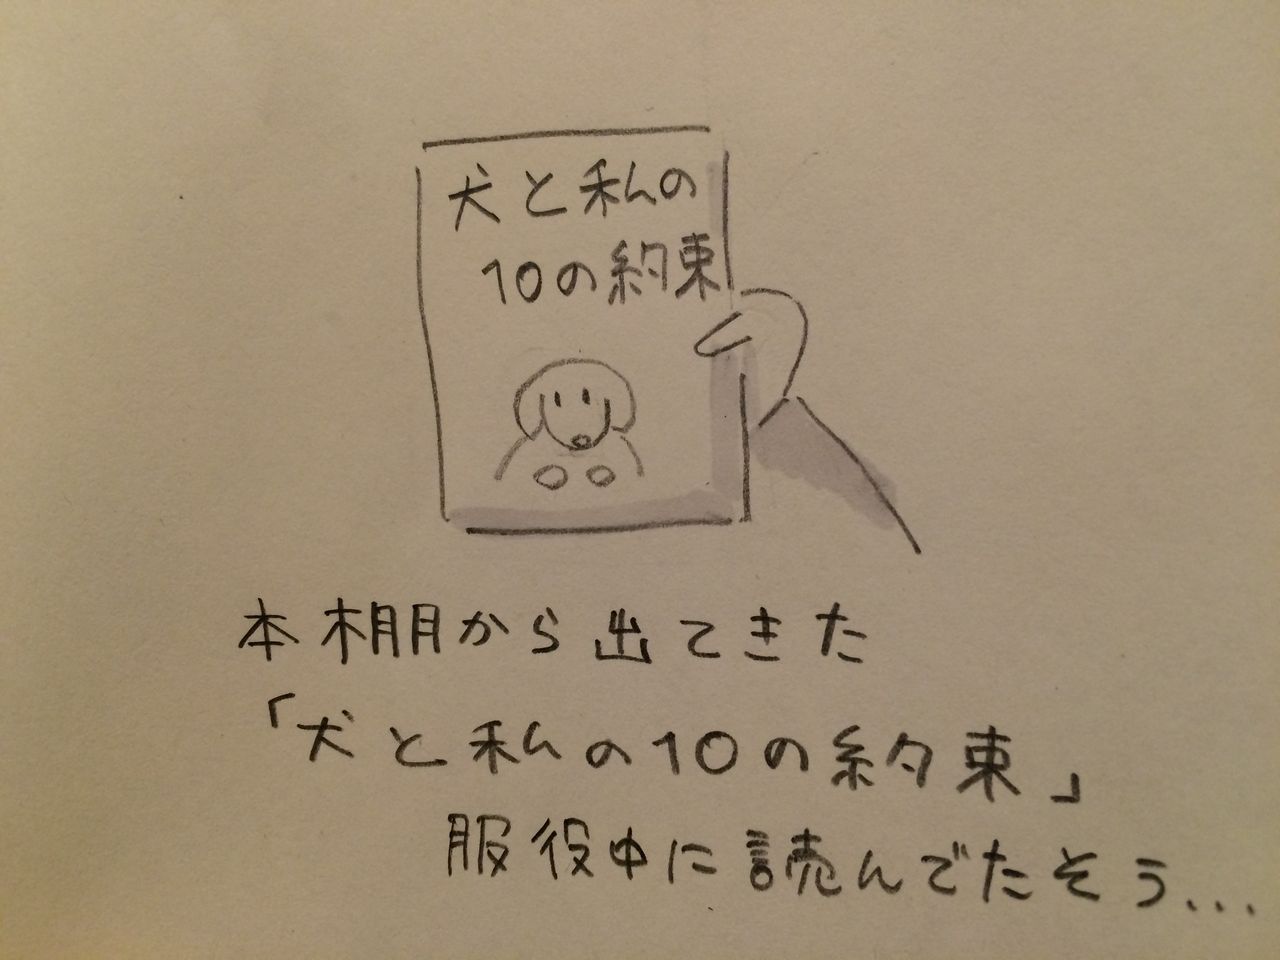 犬と私の
10の約束
本棚から出てきた
「犬と私の10の約束」
服役中に読んでたそう...